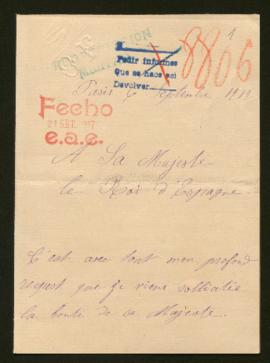 1
8806
Pedir informes
Que se hace así
Devolver
Paris 6 Septembre 1917
Fecho
21 SET. 917
e.a.e.
A Sa Majesté
le Roi d'Espagne
C'est avec tout mon profond
respect que je viens solliciter
la bonté de sa Majesté.